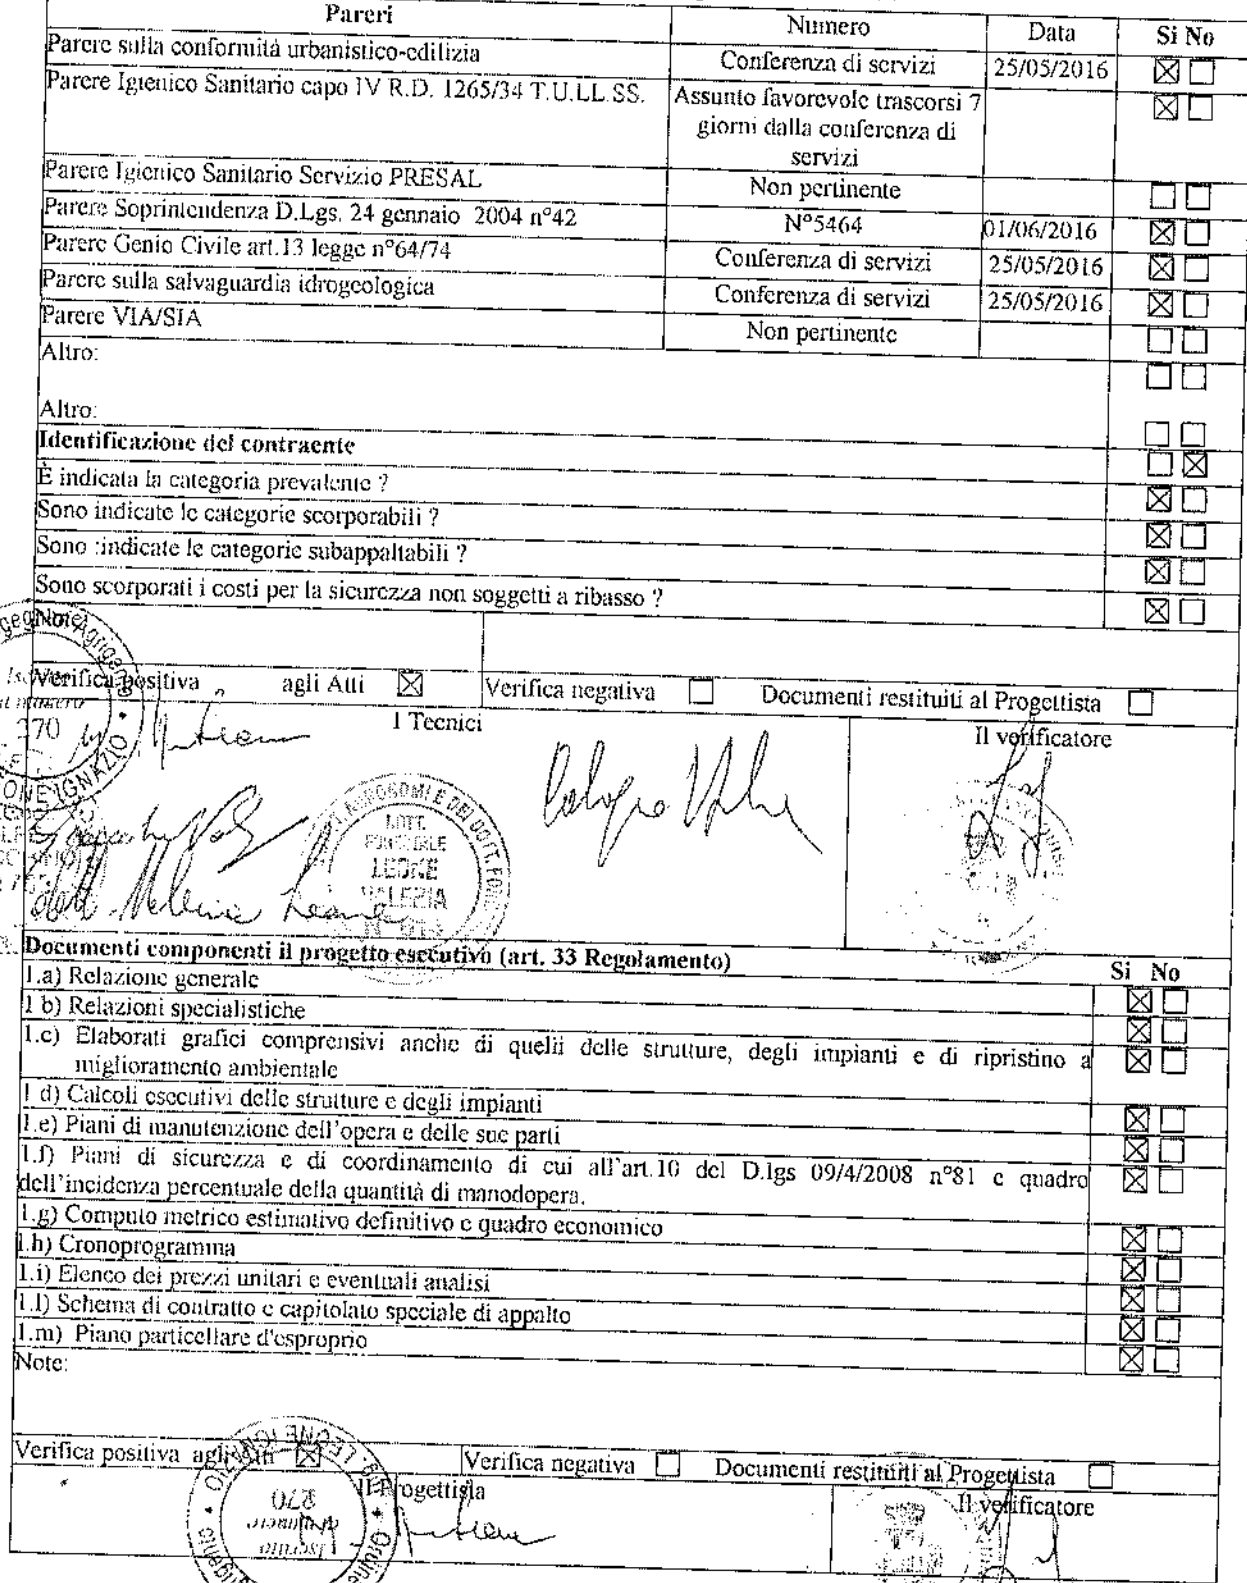 Pareri Numero Data Si No
Parere sulla conformità urbanistico-edilizia Conferenza di servizi 25/05/2016
Parere Igienico Sanitario capo IV R.D. 1265/34 T.U.LL.SS. Assunto favorevole trascorsi 7
giorni dalla conferenza di
servizi
Parere Igienico Sanitario Servizio PRESAL Non pertinente
Parere Soprintendenza D.Lgs. 24 gennaio 2004 n°42 N°5464 01/06/2016
Parere Genio Civile art.13 legge n°64/74 Conferenza di servizi 25/05/2016
Parere sulla salvaguardia idrogeologica Conferenza di servizi 25/05/2016
Parere VIA/SIA Non pertinente
Altro:
Altro:
Identificazione del contraente
È indicata la categoria prevalente ?
Sono indicate le categorie scorporabili ?
Sono indicate le categorie subappaltabili ?
Sono scorporati i costi per la sicurezza non soggetti a ribasso ?
Note:
Verifica positiva agli Atti Verifica negativa Documenti restituiti al Progettista
I Tecnici Il verificatore
370
DOTT.
FORESTALE
LEONE
VALERIA
dott. Valeria Leone
Documenti componenti il progetto esecutivo (art. 33 Regolamento) Si No
1.a) Relazione generale
1 b) Relazioni specialistiche
1.c) Elaborati grafici comprensivi anche di quelii delle strutture, degli impianti e di ripristino a
miglioramento ambientale
1 d) Calcoli esecutivi delle strutture e degli impianti
1.e) Piani di manutenzione dell'opera e delle sue parti
1.f) Piani di sicurezza e di coordinamento di cui all'art.10 del D.lgs 09/4/2008 n°81 e quadro
dell'incidenza percentuale della quantità di manodopera.
1.g) Computo metrico estimativo definitivo e quadro economico
1.h) Cronoprogramma
1.i) Elenco dei prezzi unitari e eventuali analisi
1.l) Schema di contratto e capitolato speciale di appalto
1.m) Piano particellare d'esproprio
Note:
Verifica positiva agli Atti Verifica negativa Documenti restituiti al Progettista
Il Progettista Il verificatore
LEONE IGNAZIO
370
Iscritto
al numero